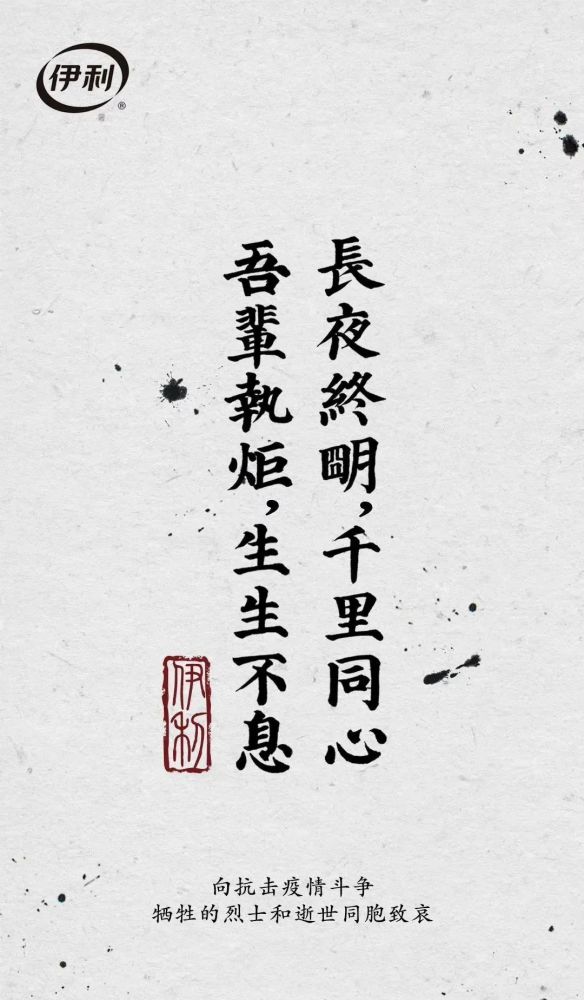 伊利®
長夜終朙，千里同心
吾輩執炬，生生不息
伊利
向抗击疫情斗争
牺牲的烈士和逝世同胞致哀